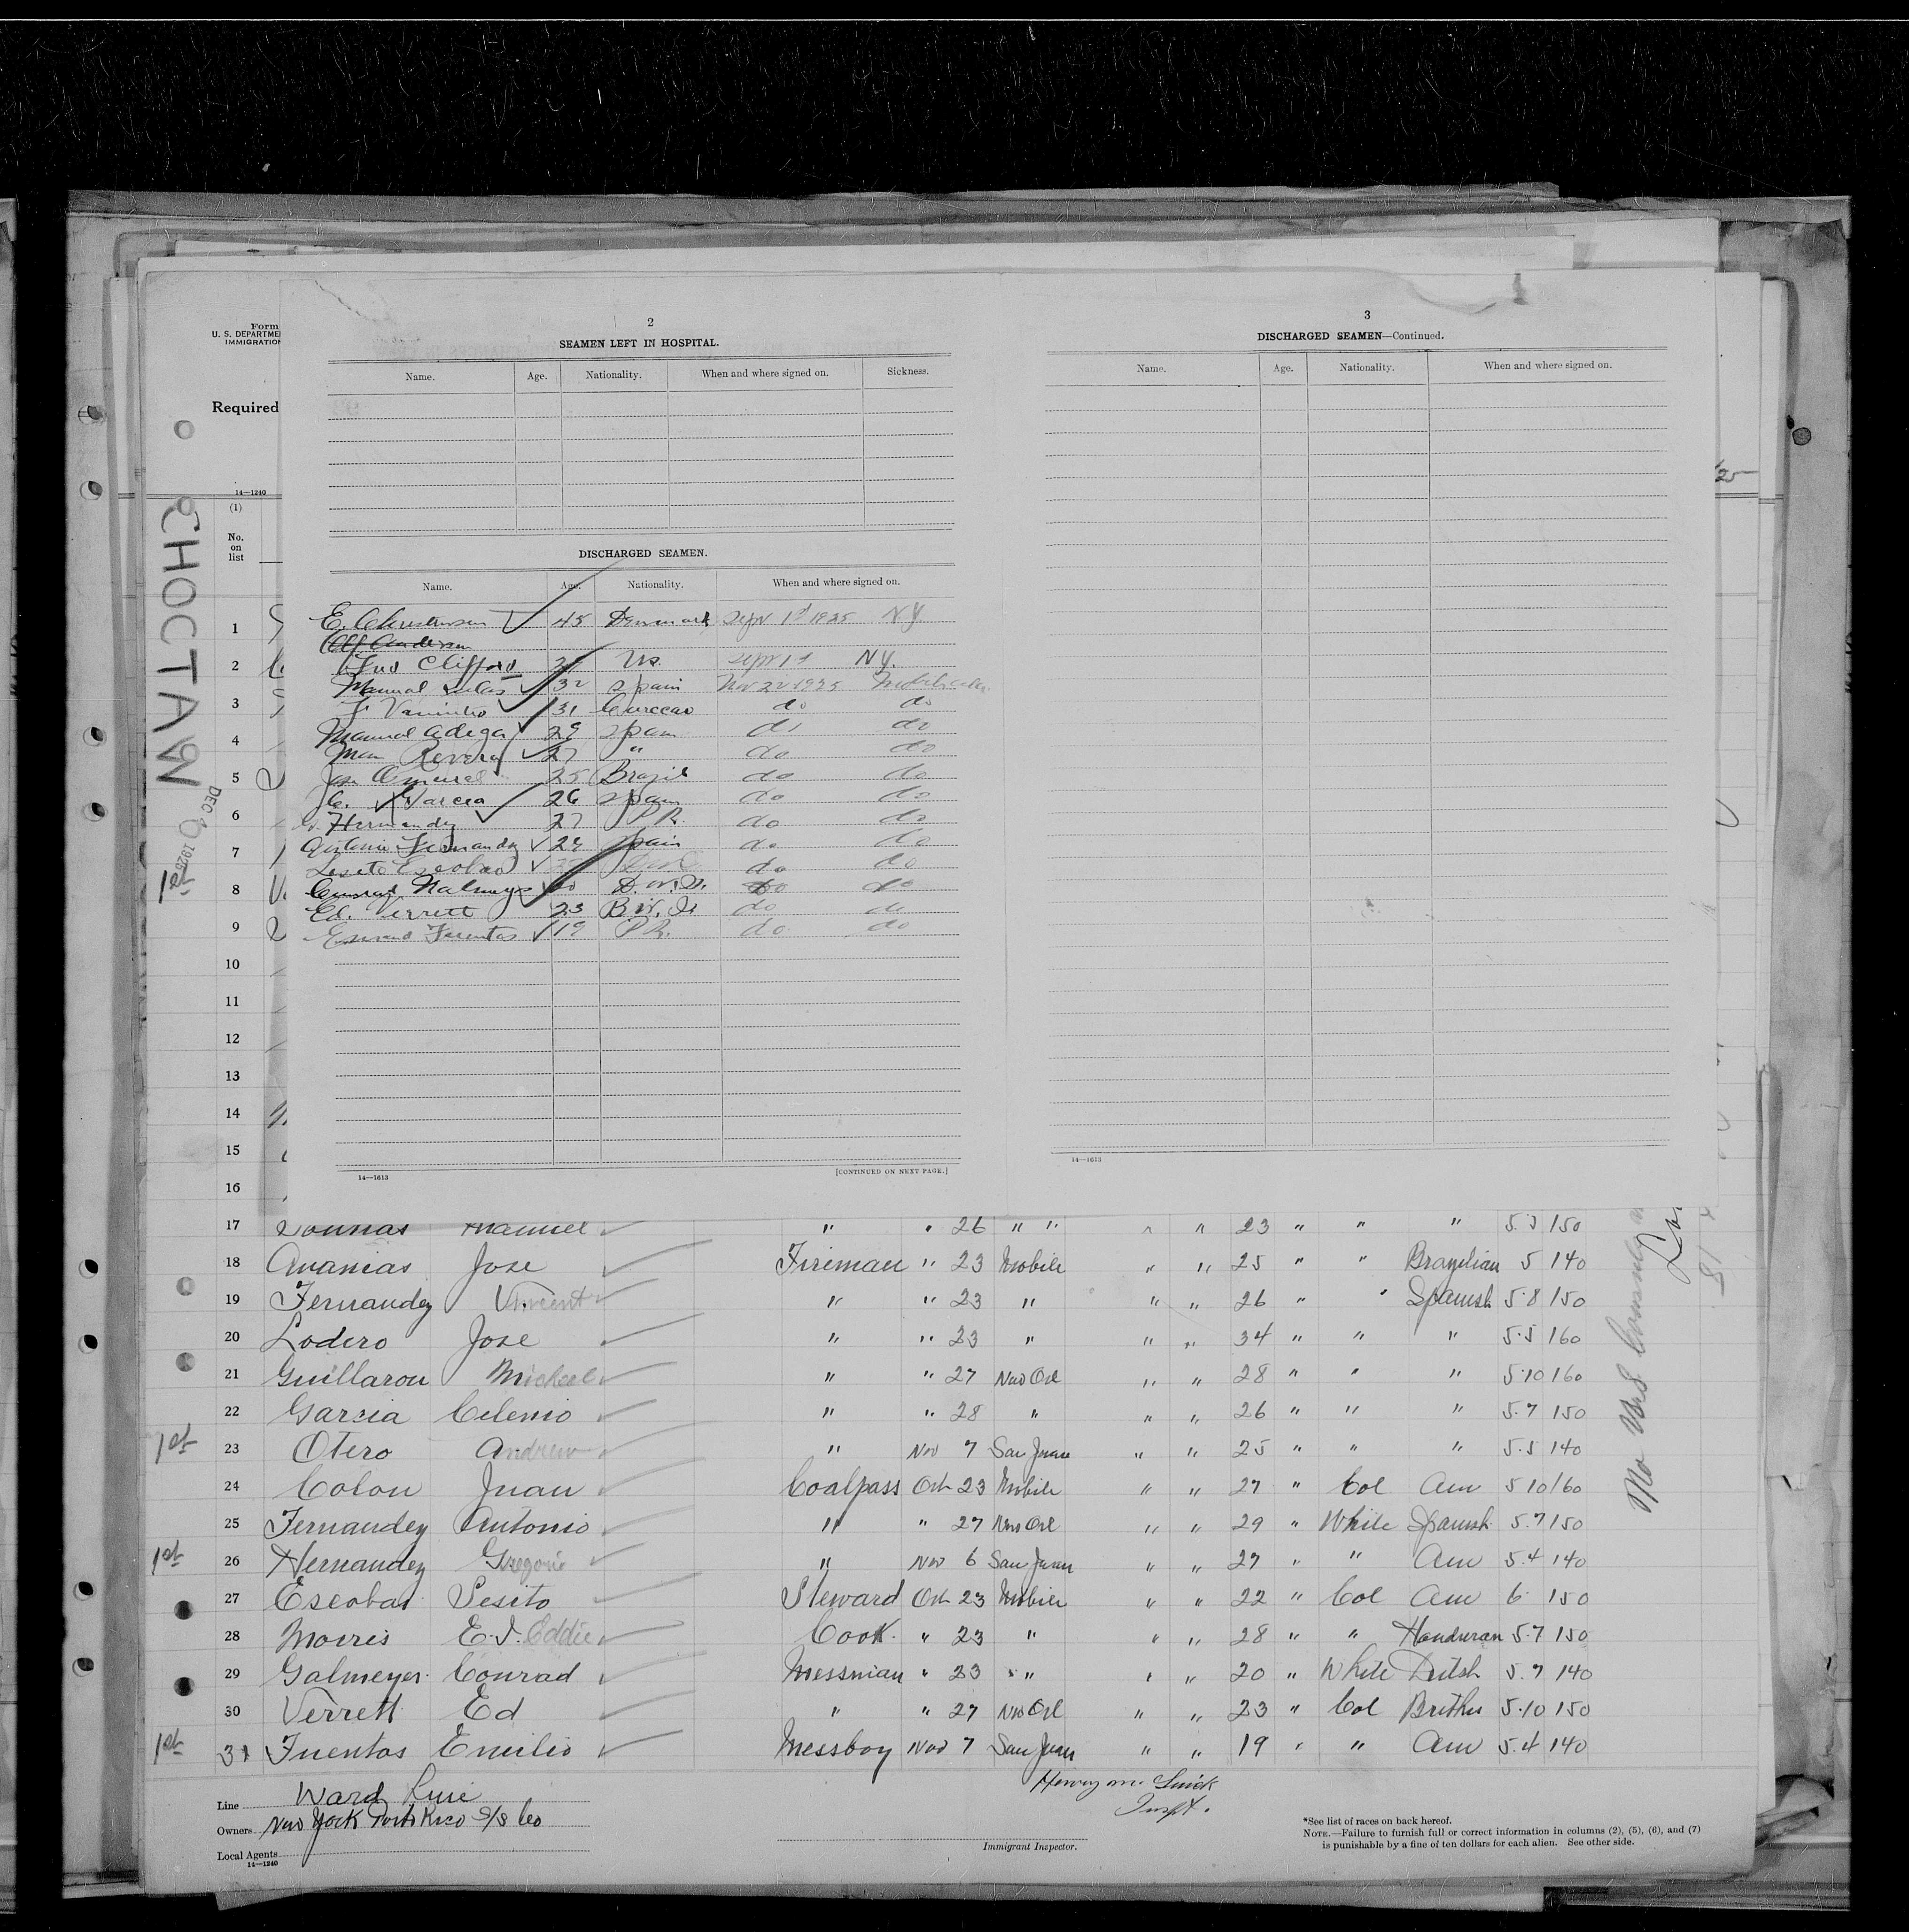 Form
U. S. DEPARTME
IMMIGRATION
Required
14—1240
(1)
No.
on
list
CHOCTAW
DEC 6 1925
1st
2
SEAMEN LEFT IN HOSPITAL.
Name. Age. Nationality. When and where signed on. Sickness.
DISCHARGED SEAMEN.
Name. Age. Nationality. When and where signed on.
E. Christensen 45 Denmark Sept 1st 1925 NY
Alf Andersen
Clifford US. Sept 1st NY.
Manuel 32 Spain Nov 22 1925
31 Curacao do do
Manuel Adega 29 Spain do do
Revera 27 " do do
25 Brazil do do
C. Garcia 26 Spain do do
G. Hernandez 27 P.R. do do
Antonio Fernandez 29 Spain do do
Sesito Escobar do do
Conrad Malmeys 20 D.W.I. do do
Ed. Verrett 23 B.W.I. do do
Fuentas 19 P.R. do do
[CONTINUED ON NEXT PAGE.]
14—1613
3
DISCHARGED SEAMEN—Continued.
Name. Age. Nationality. When and where signed on.
14—1613
1
2
3
4
5
6
7
8
9
10
11
12
13
14
15
16
17 Manuel " " 26 " " " " 23 " " " 5.5 150
18 Ananias Jose Fireman " 23 Mobile " " 25 " " Brazilian 5 140
19 Fernandez Vincent " " 23 " " " 26 " " Spanish 5.8 150
20 Lodero Jose " " 23 " " " 34 " " " 5.5 160
21 Guillarou Micheal " " 27 New Orl " " 28 " " " 5.10 160
22 Garcia Celenio " " 28 " " " 26 " " " 5.7 150
1st 23 Otero Andrew " Nov 7 San Juan " " 25 " " " 5.5 140
24 Colon Juan Coalpass Oct 23 Mobile " " 27 " Col Am 5 10 160
25 Fernandez Antonio " " 27 New Orl " " 29 " White Spanish 5.7 150
1st 26 Hernandez Gregorio " Nov 6 San Juan " " 27 " " Am 5.4 140
27 Escobar Sesito Steward Oct 23 Mobile " " 22 " Col Am 6 150
28 Morris E.I. Eddie Cook " 23 " " " 28 " " Honduran 5.7 150
29 Galmeyer Conrad Messman " 23 " " " " 20 " White Dutch 5.7 140
30 Verrett Ed " " 27 New Orl " " 23 " Col Brithis 5.10 150
1st 31 Fuentas Emilio Messboy Nov 7 San Juan " " 19 " " Am 5.4 140
Line Ward Line
Owners New York Porto Rico S/S Co
Local Agents
14—1240
Inspt.
Immigrant Inspector.
*See list of races on back hereof.
NOTE.—Failure to furnish full or correct information in columns (2), (5), (6), and (7)
is punishable by a fine of ten dollars for each alien. See other side.